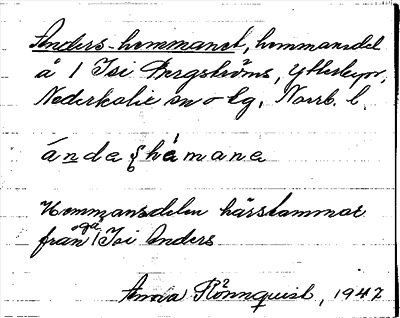 Anders-hemmanet, hemmansdel
å 1 Isi Bergströms, Ytterbyn,
Nederkalix sn o lg, Norrb. l.
ánda hemane
Hemmansdelen härstammar
från 1 Isi Anders
Anna Rönnquist, 1947